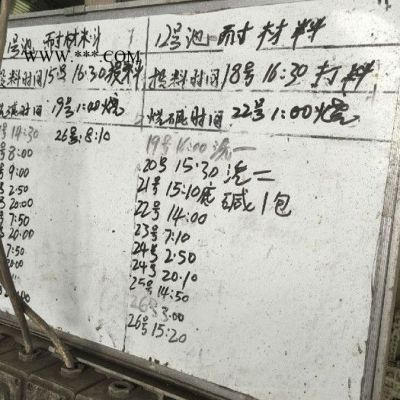 号池 耐材料
WWW.***.COM
投料时间15号 16:30投料
时间 19号 1:00烧
14:30 26号 8:10
号 8:00
号 9:00
号 2:50
号 20:00
号 7:50
号 20:00
7:50
12号池 耐材料
投料时间 18号 16:30 打料
烧碱时间 22号 1:00烧
19号 16:00 洗一
20号 15:30 洗二
21号 15:10底碱1包
22号 14:00
23号 7:10
24号 2:50
24号 20:10
25号 14:50
26号 3:00
26号 15:20